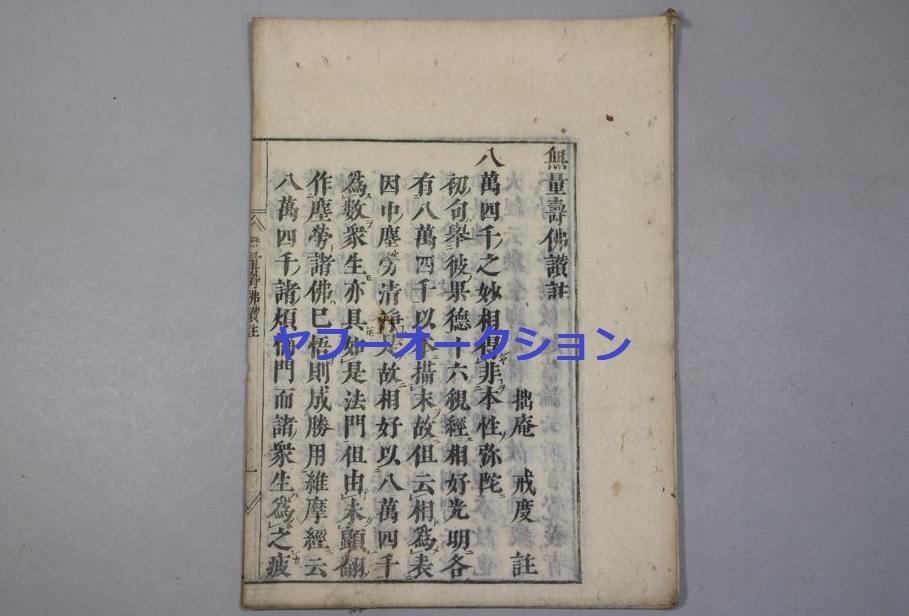 無量壽佛讃註
拙庵 戒度 註
八萬四千之妙相得非本性弥陀
初句舉彼果德十六觀經相好光明各
有八萬四千以本攝末故但云相為表
因中塵勞清淨是故相好以八萬四千
為數衆生亦具如是法門但由未顛翻
作塵勞諸佛已悟則成勝用維摩經云
八萬四千諸煩惱門而諸衆生為之疲
無量壽佛讃註
一
ヤフーオークション